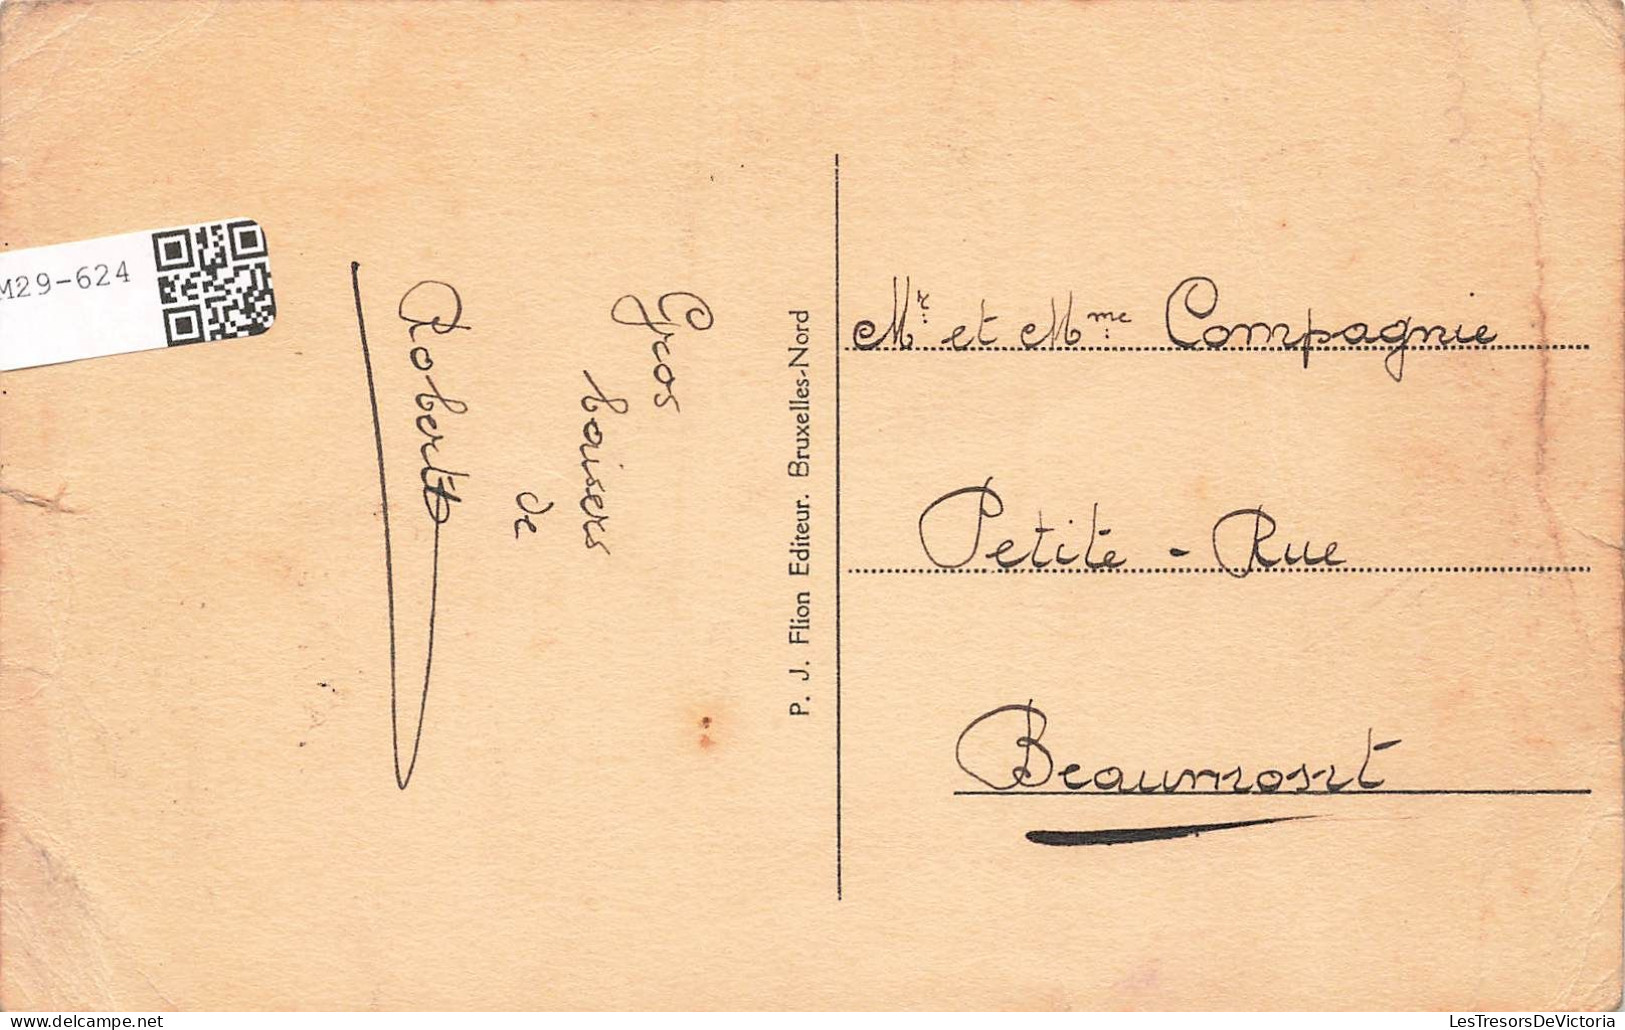 M29-624
Gros
baisers
de
Robert
P. J. Flion Editeur. Bruxelles-Nord
Mr et Mme Compagnie
Petite - Rue
Beaumont
LesTresorsDeVictoria